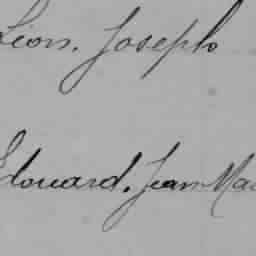 Léon. Joseph
Edouard. Jean Mar